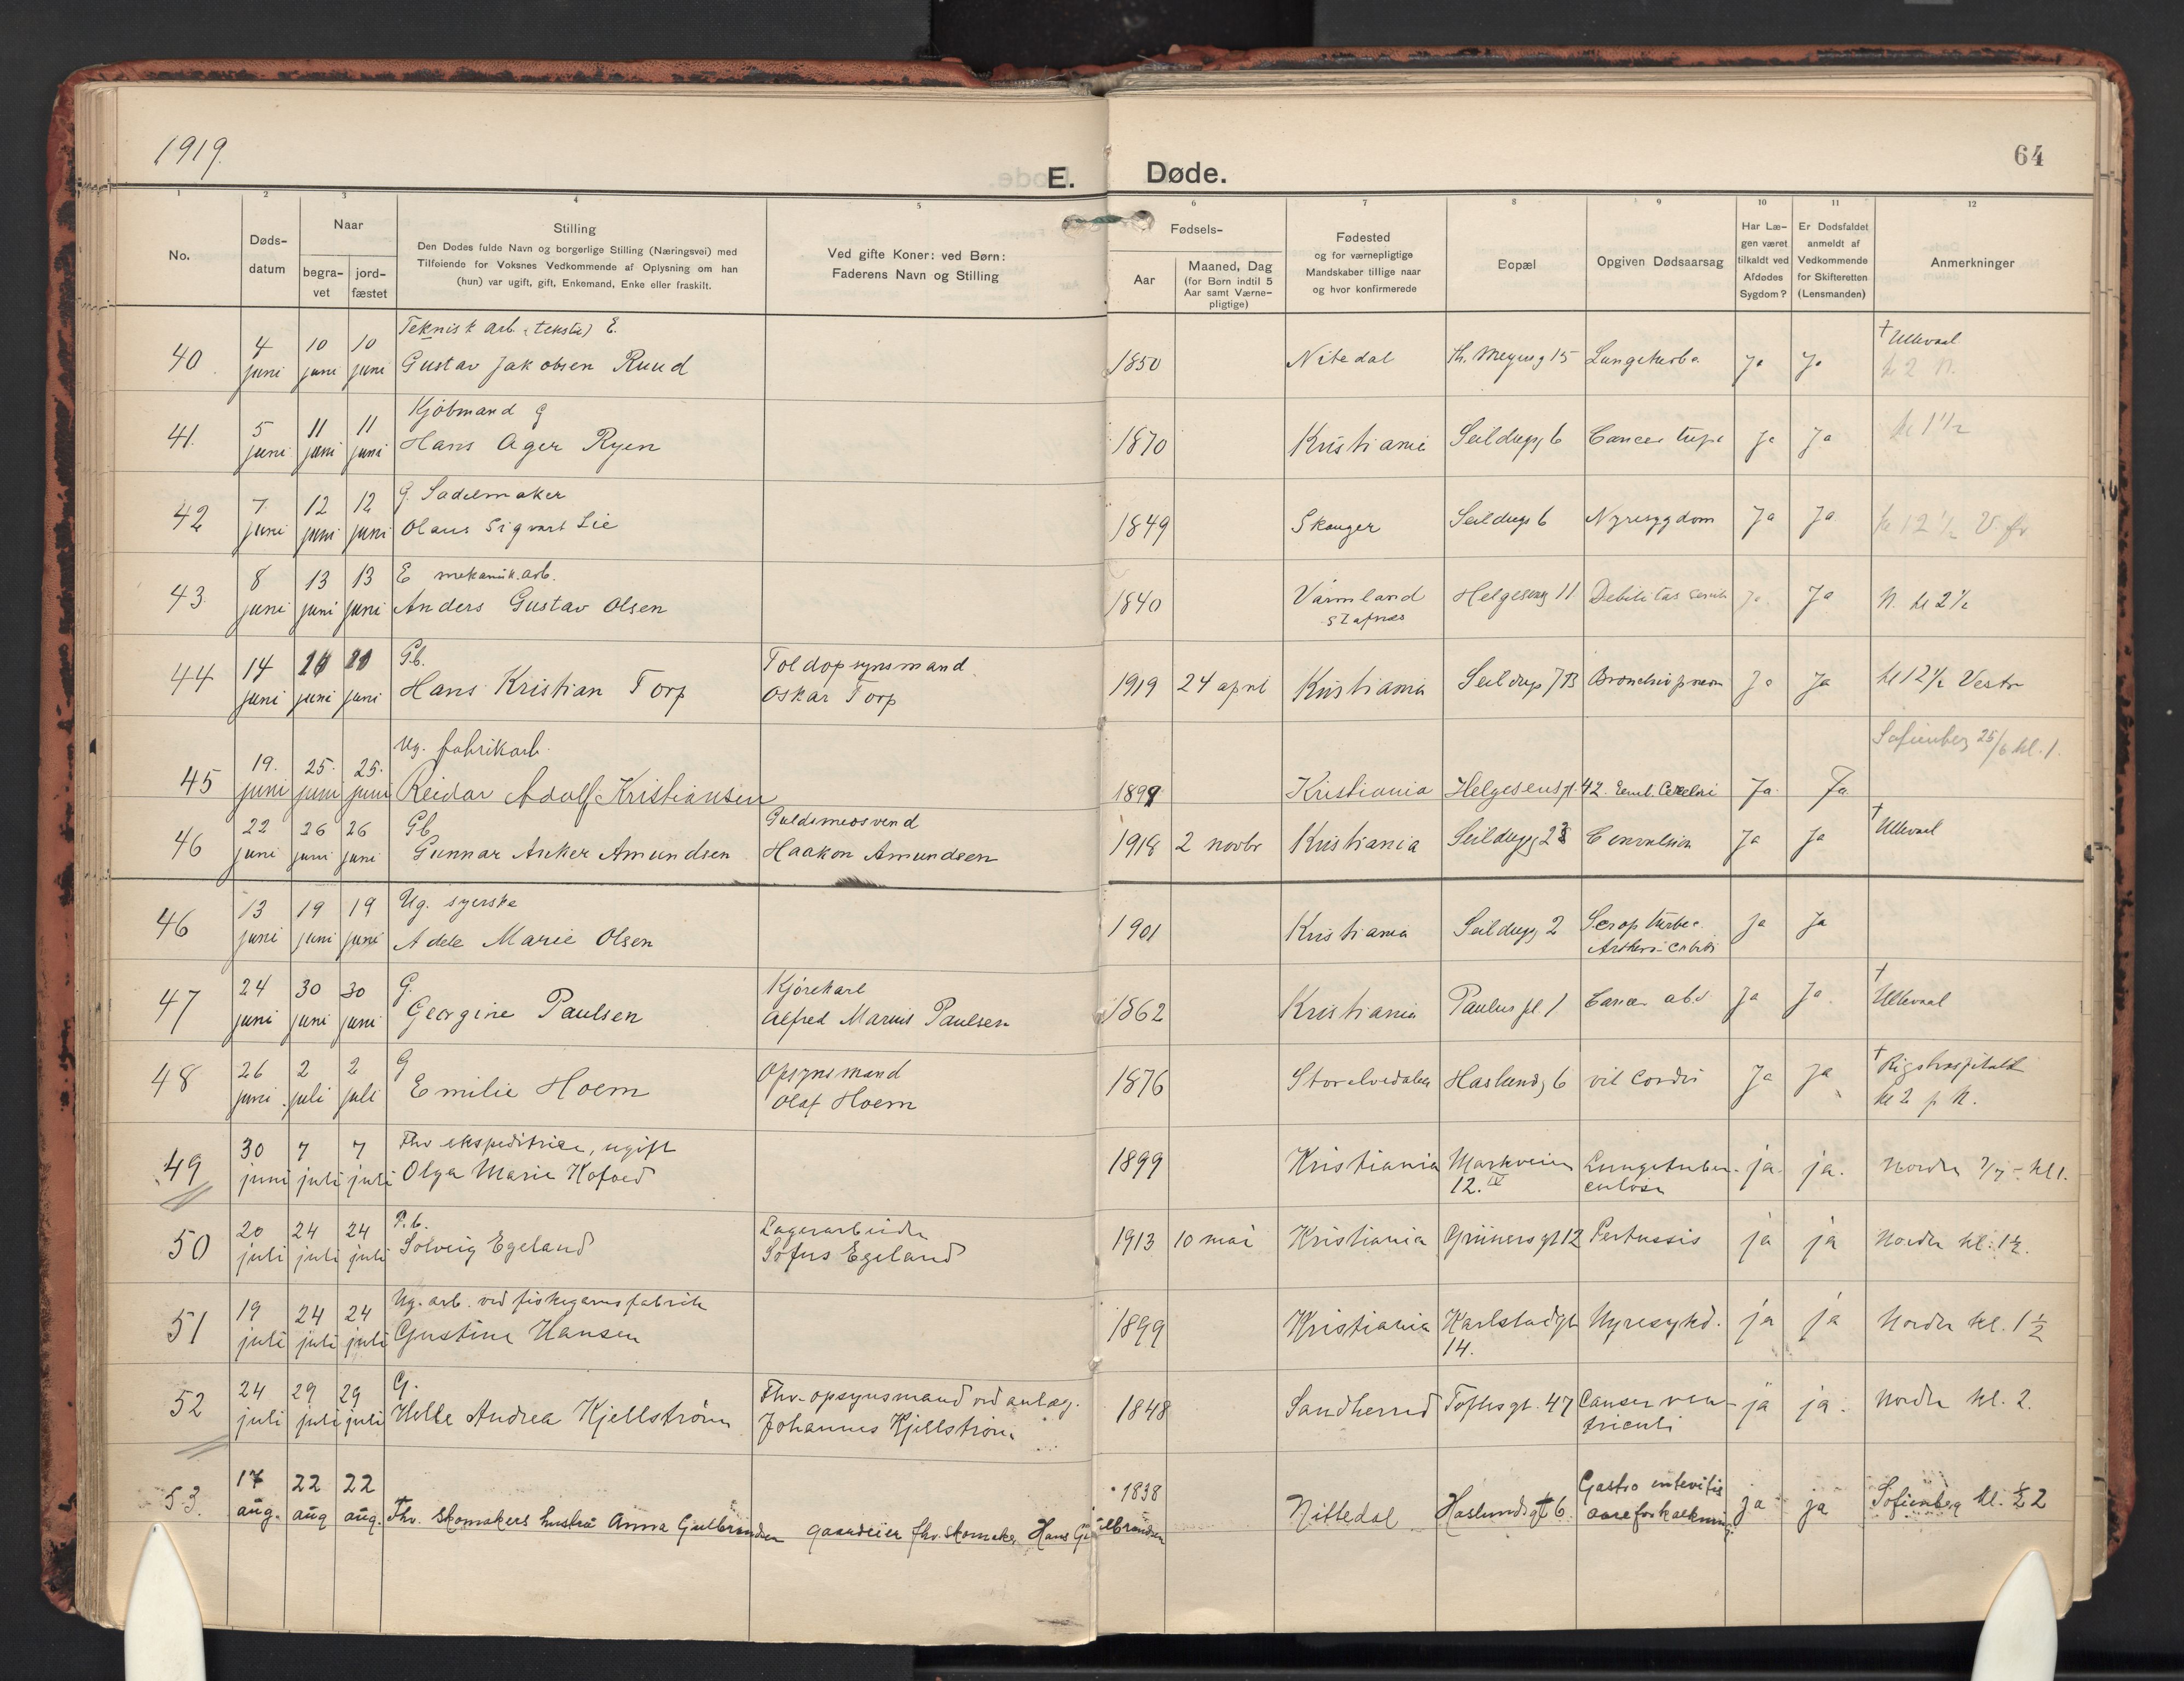 1919.
E. Døde.
64
1 2 3 4 5 6 7 8 9 10 11 12
No.
Døds-
datum
Naar
begra-
vet
jord-
fæstet
Stilling
Den Dødes fulde Navn og borgerlige Stilling (Næringsvei) med
Tilføiende for Voksnes Vedkommende af Oplysning om han
(hun) var ugift, gift, Enkemand, Enke eller fraskilt.
Ved gifte Koner: ved Børn:
Faderens Navn og Stilling
Fødsels-
Aar
Maaned, Dag
(for Børn indtil 5
Aar samt Værne-
pligtige)
Fødested
og for værnepligtige
Mandskaber tillige naar
og hvor konfirmerede
Bopæl
Opgiven Dødsaarsag
Har Læ-
gen været
tilkaldt ved
Afdødes
Sygdom?
Er Dødsfaldet
anmeldt af
Vedkommende
for Skifteretten
(Lensmanden)
Anmerkninger
Teknisk arb. E. † Ullevaal
40 4 juni 10 juni 10 juni Gustav Jakobsen Ruud 1850 Nitedal Th. Meyersg 15 Ja Ja kl 2 N.
Kjøbmand G
41. 5 juni 11 juni 11 juni Hans Ager Ryen 1870 Kristiania Seildugsg 6 Cancer Ja Ja kl 1 1/2
G. Sadelmaker
42 7 juni 12 juni 12 juni Olaus Sigvart Lie 1849 Skauger Seildugs 6 Nyresygdom Ja Ja kl 12 1/2 V.
E mekanik. arb.
43. 8 juni 13 juni 13 juni Anders Gustav Olsen 1840 Värmland Helgesensg 11 Debilitas Ja Ja N. kl 2 1/2
Gb. Toldopsynsmand
44 14 juni juni juni Hans Kristian Torp Oskar Torp 1919 24 april Kristiania Seildugs 7B Ja Ja kl 12 1/2 Vestre
Ug. fabrikarb. Sofienberg 25/6 kl. 1.
45 19. juni 25. juni 25. juni Reidar Adolf Kristiansen Kristiania Helgesensgt. 42. Ja. Ja
Gb Guldsmedsvend † Ullevaal
46 22 juni 26 juni 26 juni Gunnar Anker Amundsen Haakon Amundsen 1918 2 novbr Kristiania Seildugsg Convulsion Ja Ja
Ug. syerske
46 13 juni 19 juni 19 juni Adele Marie Olsen 1901 Kristiania Seildugsg 2 Ja Ja
G. Kjørekarl †
47 24 juni 30 juni 30 juni Georgine Paulsen Alfred Marius Paulsen 1862 Kristiania Paulus pl. 1 Cancer abd Ja Ja Ullevaal
G Opsynsmand † Rigshospitalet
48 26 juni 2 juli 2 juli Emilie Hoem Olaf Hoem 1876 Storelvedalen Haslundsg 6 vit Cordis Ja Ja kl 2 p N.
Fhv ekspeditrice, ugift
49 30 juni 7 juli 7 juli Olga Marie Kofoed 1899 Kristiania Markveien 12. IV Lungetuberculose ja. ja. Nordre 7/7 - kl 1.
P.b. Lagerarbeider
50 20 juli 24 juli 24 juli Solveig Egeland Sofus Egeland 1913 10 mai Kristiania Grünersgt 12 Pertussis ja ja Nordre kl. 1 1/2.
Ug. arb. ved fiskegarnsfabrik
51 19 juli 24 juli 24 juli Gustine Hansen 1899 Kristiania Karlstadgt 14. Nyresykd. ja ja Nordre kl. 1 1/2
G. Fhv. opsynsmand ved anlæg.
52 24 juli 29 juli 29 juli Helle Andrea Kjellstrøm Johannes Kjellstrøm 1848 Sandherred Toftesgt. 47 Canser ventriculi ja ja. Nordre kl. 2.
53. 17 aug. 22 aug 22 aug. Fhv. skomakers hustru Anna Gulbrandsen gaardeier fhv. skomaker Hans Gulbrandsen 1838 Nittedal Haslundsgt 6. Gastro enteritis aareforkalkning ja ja Sofienberg kl. 1/2 2